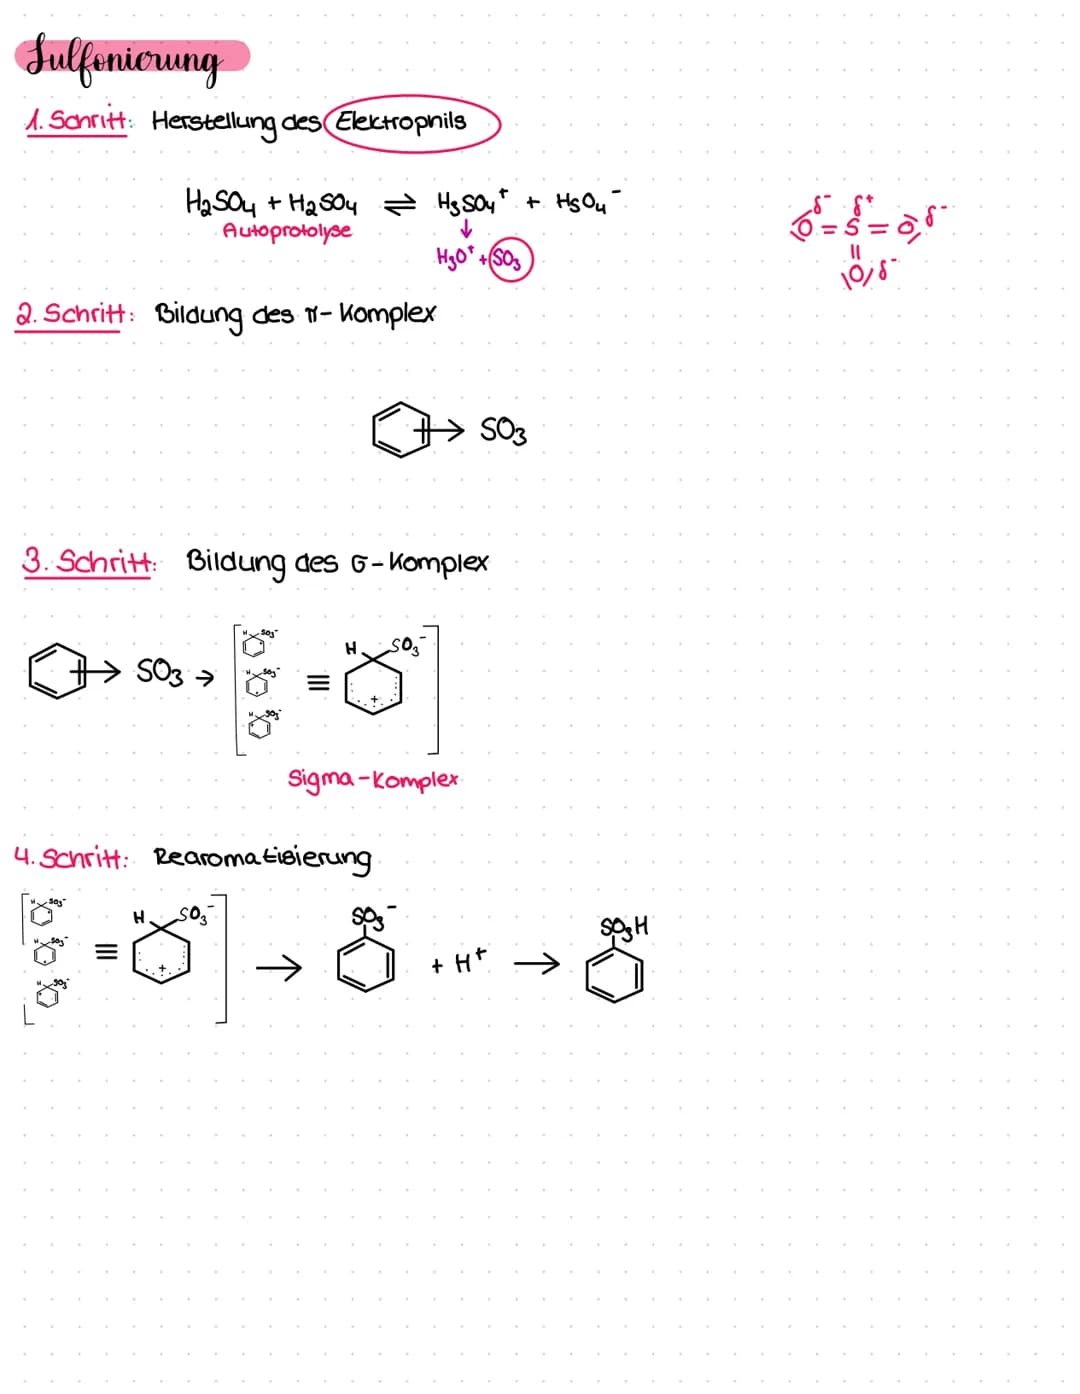 Sulfonierung
1. Schritt: Herstellung des Elektrophils
H₂SO₄ + H₂SO₄ ⇌ H₃SO₄⁺ + HSO₄⁻
Autoprotolyse ↓
H₃O⁺ + SO₃
δ⁻ δ⁺ δ⁻
O = S = O
||
O δ⁻
2. Schritt: Bildung des π-Komplex
→ SO₃
3. Schritt: Bildung des σ-Komplex
H SO₃⁻
H SO₃⁻
→ SO₃ → H SO₃⁻ ≡ +
H SO₃⁻
Sigma-Komplex
4. Schritt: Rearomatisierung
H SO₃⁻
H SO₃⁻ SO₃⁻ SO₃H
H SO₃⁻ ≡ + → + H⁺ →
H SO₃⁻